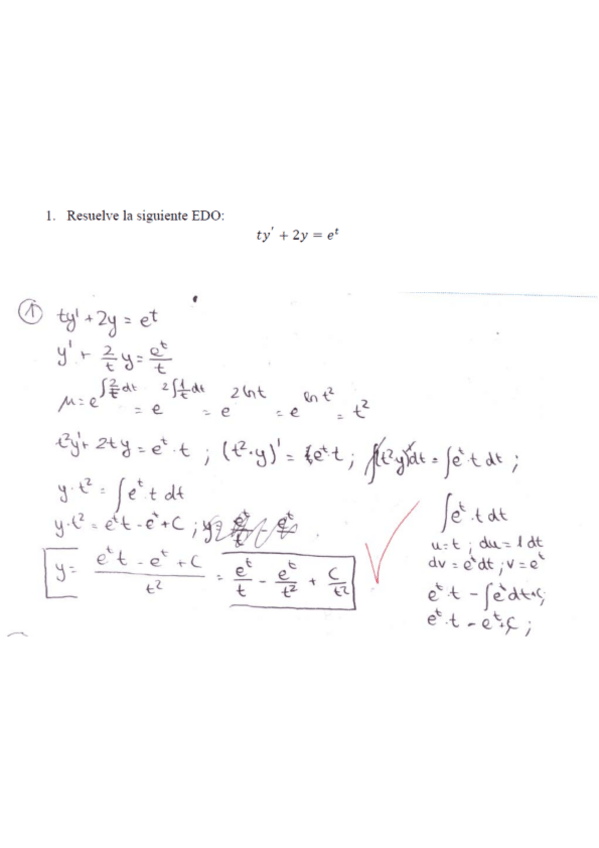 1. Resuelve la siguiente EDO:
ty' + 2y = e^t
① ty' + 2y = e^t
y' + 2/t y = e^t/t
μ = e^{∫2/t dt} = e^{2∫1/t dt} = e^{2 ln t} = e^{ln t²} = t²
t²y' + 2ty = e^t · t ; (t²·y)' = e^t·t ; ∫(t²y)'dt = ∫e^t·t dt ;
y·t² = ∫e^t·t dt
y·t² = e^t t - e^t + C ;
y = (e^t t - e^t + C)/t² = e^t/t - e^t/t² + C/t²
∫e^t·t dt
u = t ; du = 1 dt
dv = e^t dt ; v = e^t
e^t·t - ∫e^t dt + C;
e^t·t - e^t + C ;